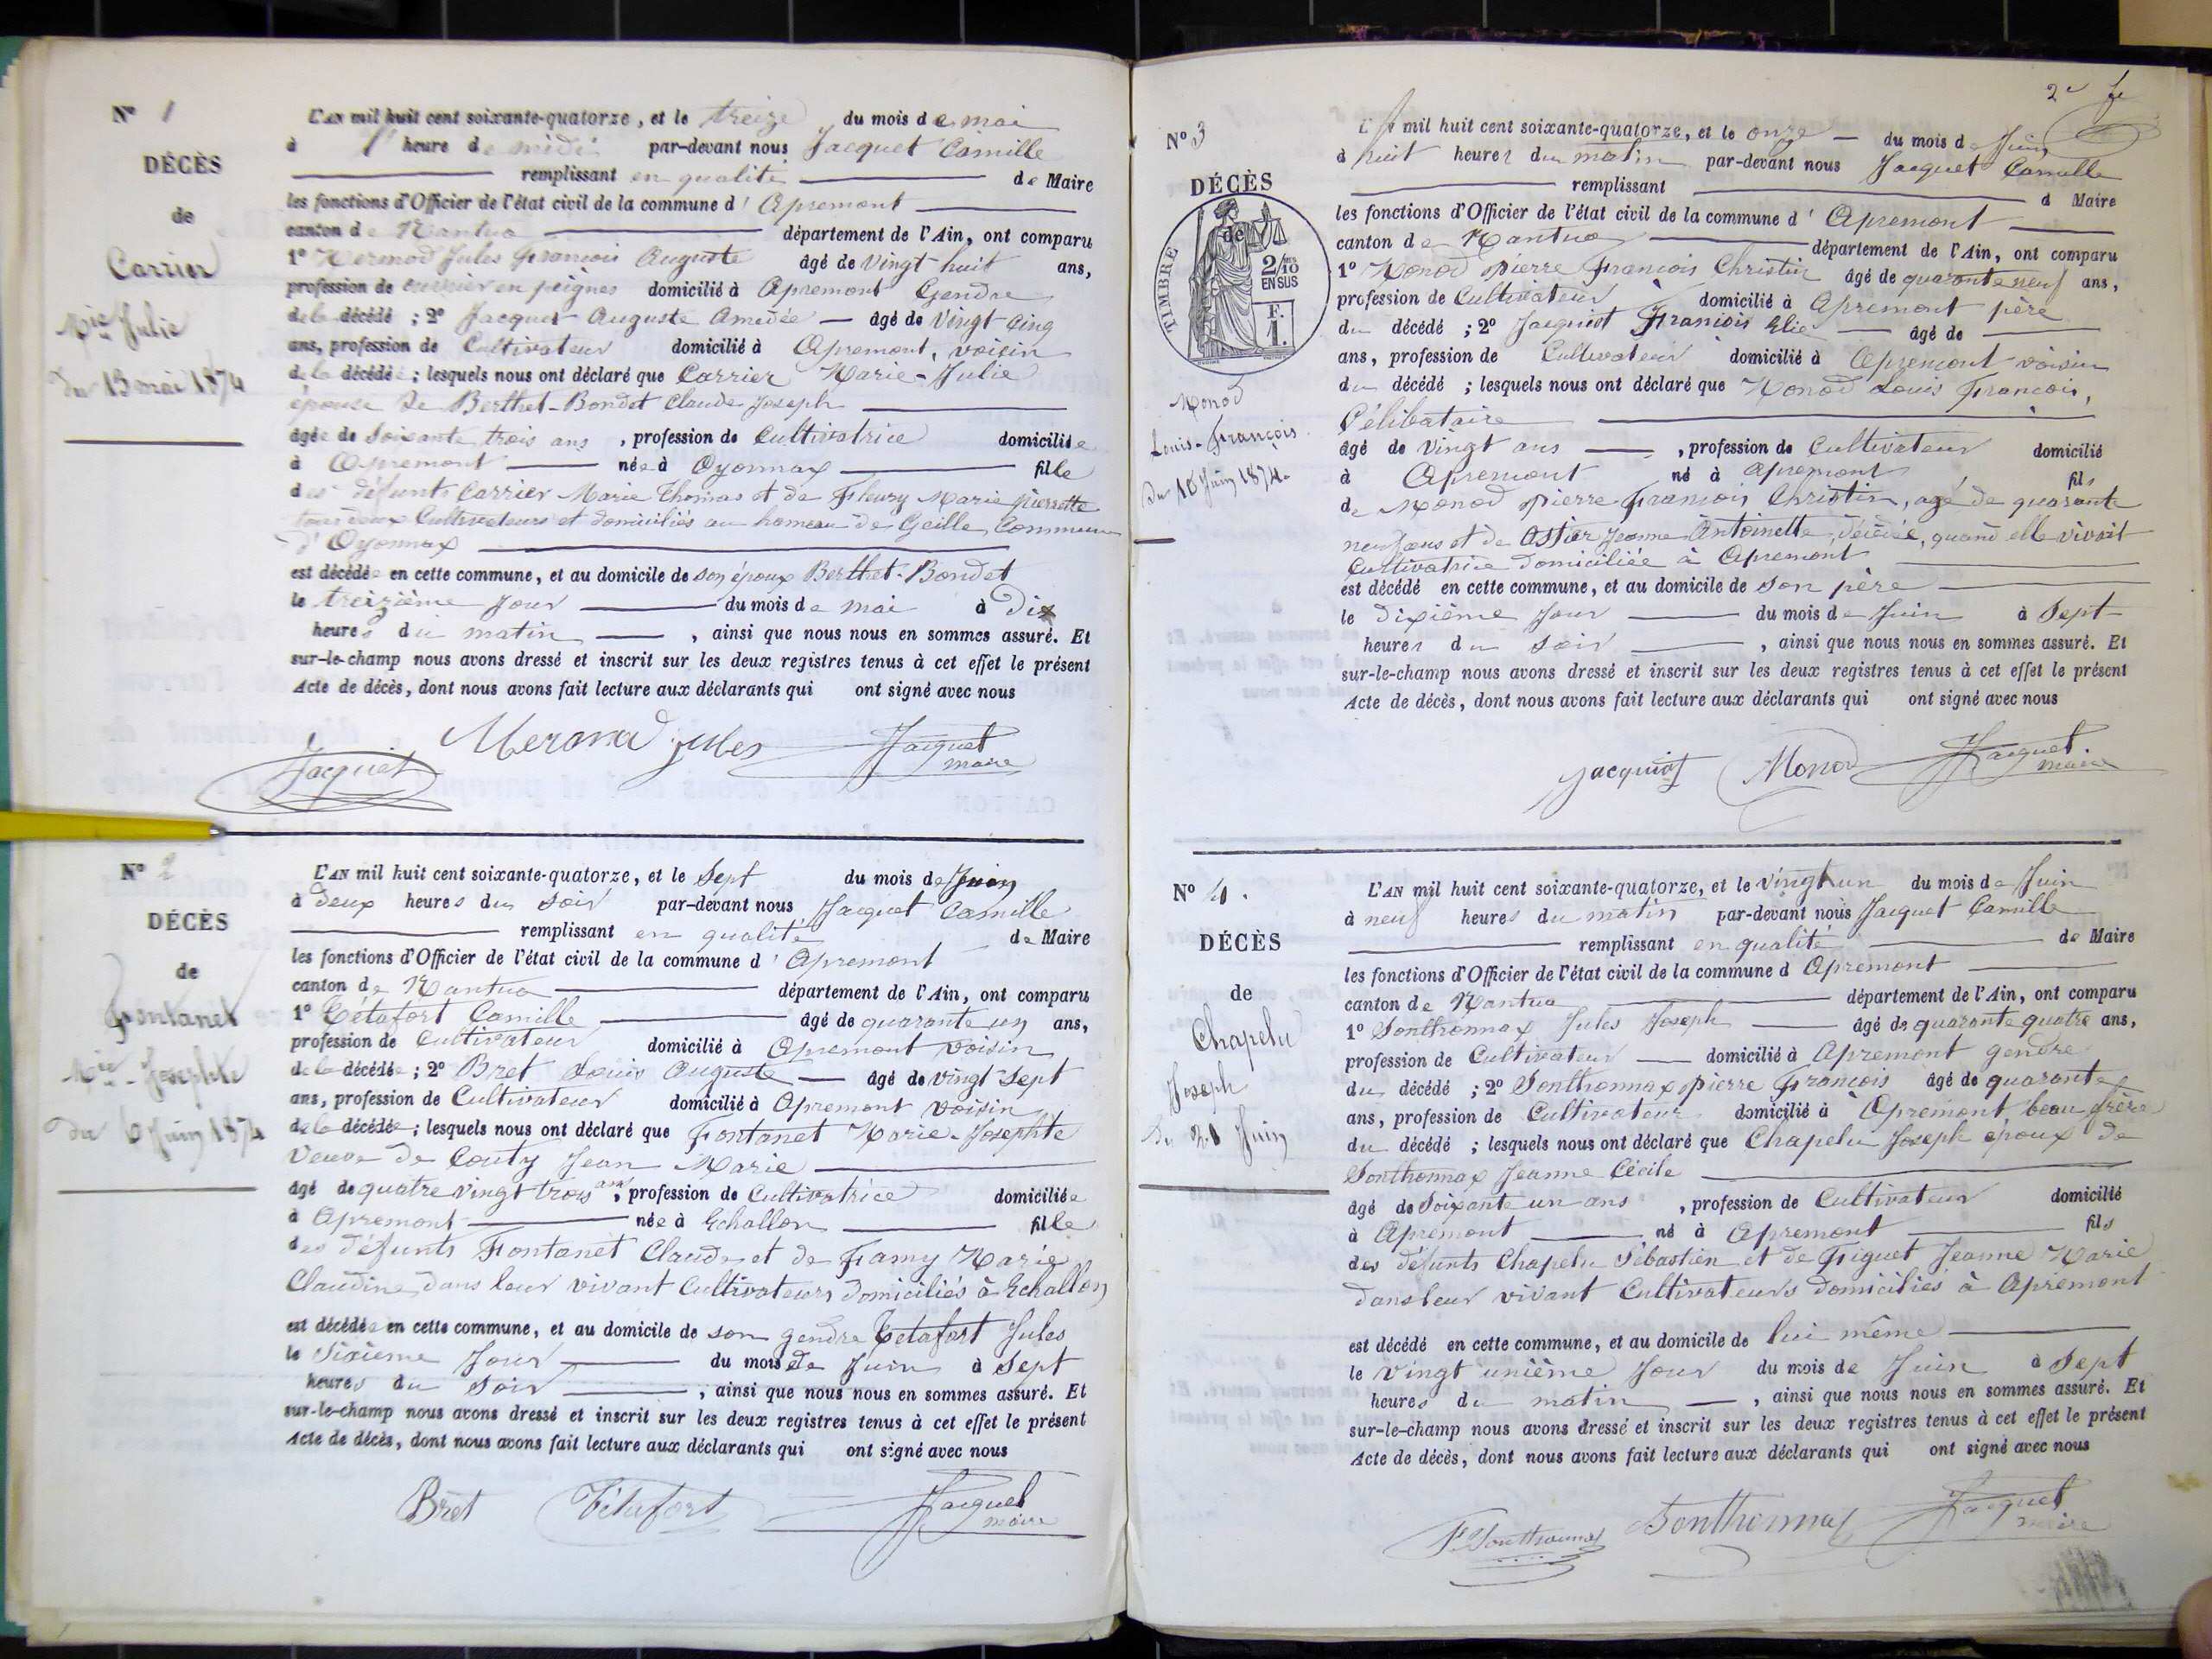 N° 1
DÉCÈS
de
Carrier
Mie Julie
du 13 mai 1874
L'AN mil huit cent soixante-quatorze, et le treize du mois de mai
à 1 heure de midi par-devant nous Jacquet Camille
remplissant en qualité de Maire
les fonctions d'Officier de l'état civil de la commune d'Apremont
canton de Nantua département de l'Ain, ont comparu
1° Mermod Jules François Auguste âgé de vingt-huit ans,
profession de ouvrier en peignes domicilié à Apremont Gendre
de la décédé ; 2° Jacquet Auguste Amédée âgé de vingt cinq
ans, profession de Cultivateur domicilié à Apremont, voisin
de la décédée ; lesquels nous ont déclaré que Carrier Marie-Julie
épouse de Berthet-Bondet Claude Joseph
âgée de Soixante trois ans, profession de Cultivatrice domiciliée
à Apremont née à Oyonnax fille
des défunts Carrier Marie Thomas et de Fleury Marie pierrette
tous deux Cultivateurs et domiciliés au hameau de Geille, Commune
d'Oyonnax
est décédée en cette commune, et au domicile de son époux Berthet-Bondet
le treizième Jour du mois de mai à Dix
heures du matin, ainsi que nous nous en sommes assuré. Et
sur-le-champ nous avons dressé et inscrit sur les deux registres tenus à cet effet le présent
Acte de décès, dont nous avons fait lecture aux déclarants qui ont signé avec nous
Jacquet Jules Jacquet
maire
N° 2
DÉCÈS
de
Fontanet
Mie-Josephte
du 6 Juin 1874
L'AN mil huit cent soixante-quatorze, et le Sept du mois de Juin
à deux heures du soir par-devant nous Jacquet Camille
remplissant en qualité de Maire
les fonctions d'Officier de l'état civil de la commune d'Apremont
canton de Nantua département de l'Ain, ont comparu
1° Tétafort Camille âgé de quarante un ans,
profession de Cultivateur domicilié à Apremont voisin
de la décédée ; 2° Bret Louis Auguste âgé de vingt Sept
ans, profession de Cultivateur domicilié à Apremont voisin
de la décédée ; lesquels nous ont déclaré que Fontanet Marie-Josephte
Veuve de Couty Jean Marie
âgé de quatre vingt trois ans, profession de Cultivatrice domiciliée
à Apremont née à Echallon fille
des défunts Fontanet Claude et de Famy Marie
Claudine, dans leur vivant Cultivateurs domiciliés à Echallon
est décédée en cette commune, et au domicile de son gendre Tétafort Jules
le Sixième Jour du mois de Juin à Sept
heures du Soir, ainsi que nous nous en sommes assuré. Et
sur-le-champ nous avons dressé et inscrit sur les deux registres tenus à cet effet le présent
Acte de décès, dont nous avons fait lecture aux déclarants qui ont signé avec nous
Bret Tétafort Jacquet
maire
2e
N° 3
DÉCÈS
de
TIMBRE
2/10
EN SUS
F.
1.
Monod
Louis-François
Du 10 Juin 1874.
L'AN mil huit cent soixante-quatorze, et le onze du mois de Juin
à huit heures du matin par-devant nous Jacquet Camille
remplissant d Maire
les fonctions d'Officier de l'état civil de la commune d'Apremont
canton de Nantua département de l'Ain, ont comparu
1° Monod pierre François Christin âgé de quarante neuf ans,
profession de Cultivateur domicilié à Apremont père
du décédé ; 2° Jacquiot François Elie âgé de
ans, profession de Cultivateur domicilié à Apremont voisin
du décédé ; lesquels nous ont déclaré que Monod Louis François,
Célibataire
âgé de vingt ans, profession de Cultivateur domicilié
à Apremont né à Apremont fils
de Monod pierre François Christin, âgé de quarante
neuf ans et de Ostier Jeanne Antoinette, décédée, quand elle vivait
Cultivatrice domiciliée à Apremont
est décédé en cette commune, et au domicile de son père
le dixième Jour du mois de Juin à Sept
heures du soir, ainsi que nous nous en sommes assuré. Et
sur-le-champ nous avons dressé et inscrit sur les deux registres tenus à cet effet le présent
Acte de décès, dont nous avons fait lecture aux déclarants qui ont signé avec nous
Jacquiot Monod Jacquet
maire
N° 4.
DÉCÈS
de
Chapelu
Joseph
Du 21 Juin
L'AN mil huit cent soixante-quatorze, et le vingt un du mois de Juin
à neuf heures du matin par-devant nous Jacquet Camille
remplissant en qualité de Maire
les fonctions d'Officier de l'état civil de la commune d Apremont
canton de Nantua département de l'Ain, ont comparu
1° Sonthonnax Jules Joseph âgé de quarante quatre ans,
profession de Cultivateur domicilié à Apremont gendre
du décédé ; 2° Sonthonnax pierre François âgé de quarante
ans, profession de Cultivateur domicilié à Apremont beau frère
du décédé ; lesquels nous ont déclaré que Chapelu Joseph époux de
Sonthonnax Jeanne Cécile
âgé de Soixante un ans, profession de Cultivateur domicilié
à Apremont né à Apremont fils
des défunts Chapelu Sébastien et de Figuet Jeanne Marie
dans leur vivant Cultivateurs domiciliés à Apremont
est décédé en cette commune, et au domicile de lui même
le vingt unième Jour du mois de Juin à Sept
heures du matin, ainsi que nous nous en sommes assuré. Et
sur-le-champ nous avons dressé et inscrit sur les deux registres tenus à cet effet le présent
Acte de décès, dont nous avons fait lecture aux déclarants qui ont signé avec nous
F Sonthonnax Sonthonnax Jacquet
maire